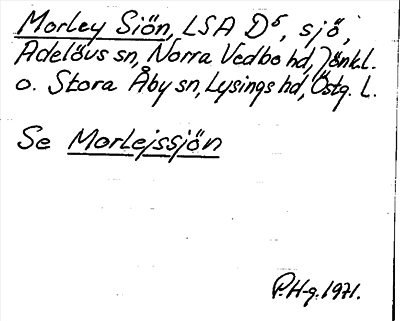 Morley Siön, LSA D⁵, sjö,
Adelövs sn, Norra Vedbo hd, Jönk.l.
o. Stora Åby sn, Lysings hd, Östg. l.
Se Morlejssjön
P.H-g. 1971.